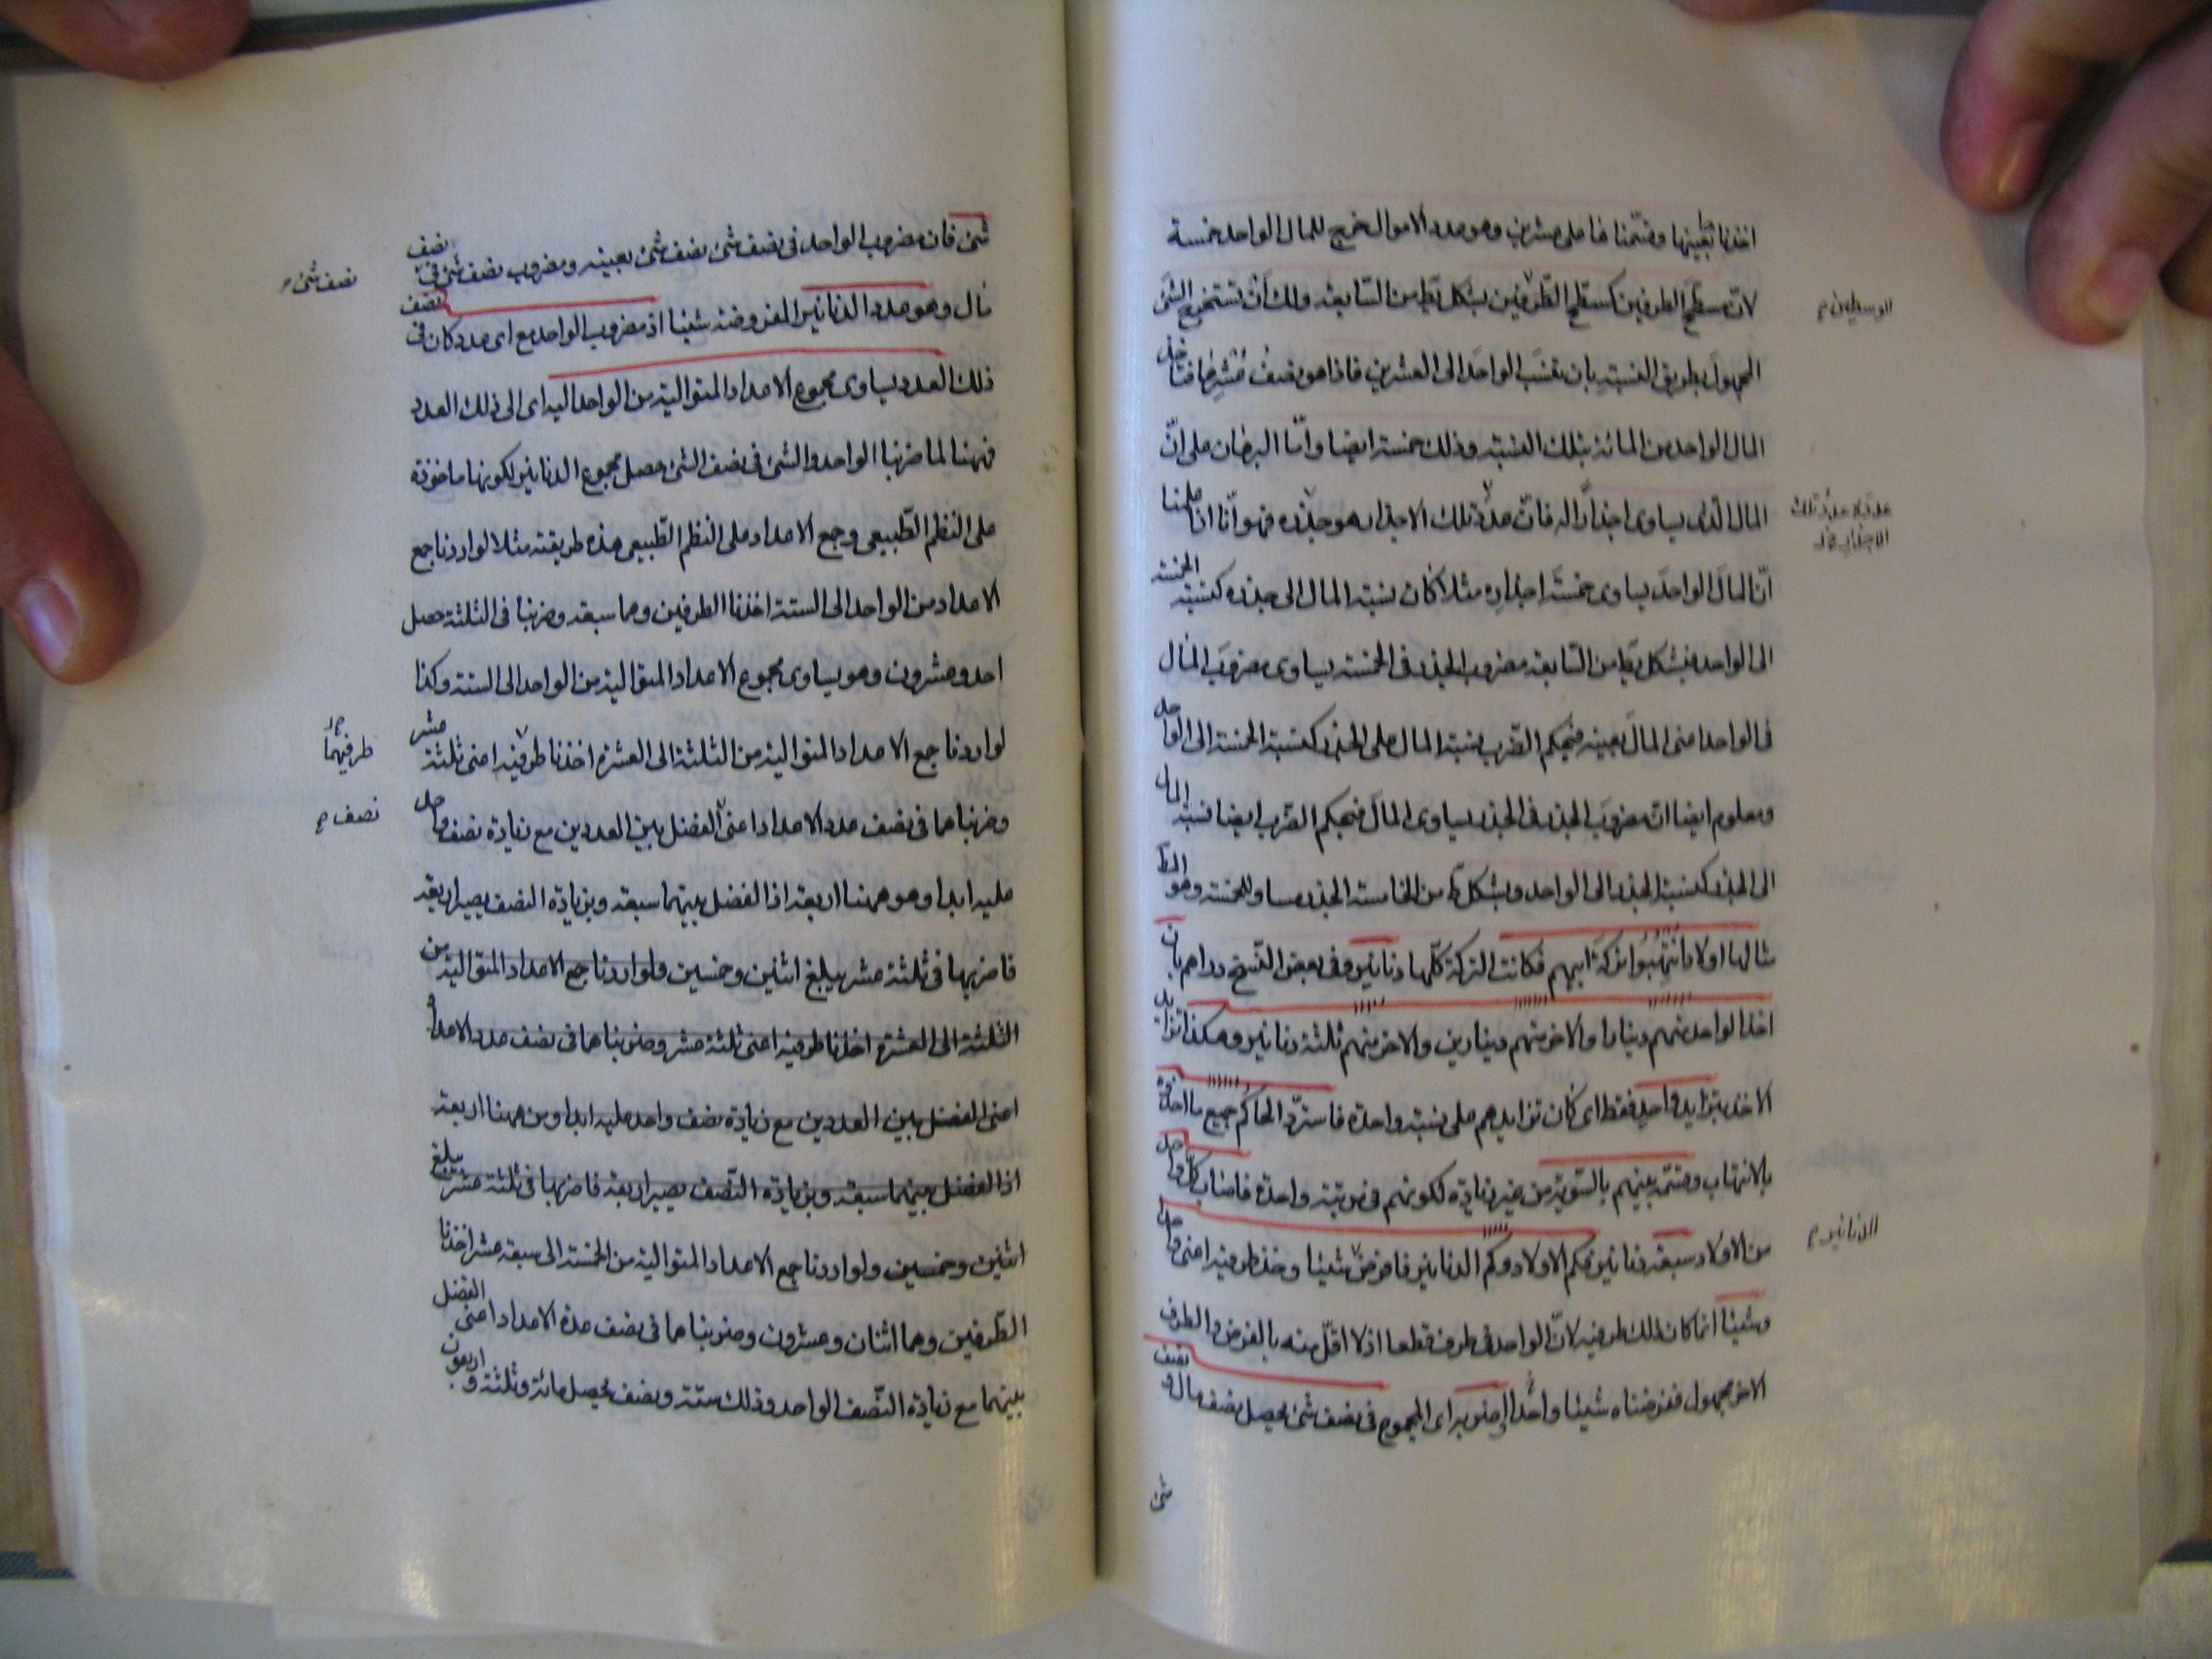 اخذنا بعينها وقسمناها على عشرين وهو عدد الاموال خرج للمال الواحد خمسة
لان مسطح الطرفين كمسطح الطرفين بشكل يط من السابعة ولك ان تستخرج الشئ
الوسطين
المجهول بطريق النسبة بان تنسب الواحد الى العشرين فاذا هو نصف عشرها فتأخذ
المال الواحد من المائة بتلك النسبة وذلك خمسة ايضا واما البرهان على ان
المال الذى يساوى اجذاراله فان عدة تلك الاجذار هو جذره فهو انا اذا علمنا
ان المال الواحد يساوى خمسة اجذاره مثلا كان نسبة المال الى جذره كنسبة الخمسة
الى الواحد فبشكل يط من السابعة مضروب الجذر فى الخمسة يساوى مضروب المال
فى الواحد اعنى المال بعينه فبحكم الضرب نسبة المال على الجذر كنسبة الخمسة الى الواحد
ومعلوم ايضا ان مضروب الجذر فى الجذر يساوى المال فبحكم الضرب ايضا نسبة المال
الى الجذر كنسبة الجذر الى الواحد وبشكل ط من الخامسة الجذر مساو للخمسة وهو المط
مثالها اولاد انتهبوا تركة ابيهم فكانت التركة كلها دنانير وفى بعض النسخ دراهم بان
اخذ الواحد منهم دينارا والاخر منهم دينارين والاخر منهم ثلثة دنانير وهكذا تزايد
الاخذ بتزايد واحد فقط اى كان تزايدهم على نسبة واحدة فاسترد الحاكم جميع ما اخذوه
بالانتهاب وقسمه بينهم بالسوية من غير زيادة لكونهم فى مرتبة واحدة فاصاب كل واحد
من الاولاد سبعة دنانير فكم الاولاد وكم الدنانير فافرض شيئا وخذ طرفيه اعنى واحدا
الدنانير
وشيئا انما كان ذلك طرفيه لان الواحد فى طرف قطعا اذ لا اقل منه بالفرض والطرف
الاخر مجهول ففرضناه شيئا واحدا اضربه اى المجموع فى نصف شئ يحصل نصف مال ونصف
شئ
شئ فان مضروب الواحد فى نصف شئ نصف شئ بعينه ومضروب نصف شئ فى نصف
نصف شئ
مال وهو عدد الدنانير المفروضة شيئا اذ مضروب الواحد مع اى عدد كان فى نصف
ذلك العدد يساوى مجموع الاعداد المتوالية من الواحد اليه اى الى ذلك العدد
فههنا لما ضربنا الواحد والشئ فى نصف الشئ حصل مجموع الدنانير لكونها ماخوذة
على النظم الطبيعى وجمع الاعداد على النظم الطبيعى هذه طريقته مثلا لو اردنا جمع
الاعداد من الواحد الى الستة اخذنا الطرفين وهما سبعة وضربنا فى الثلثة حصل
احد وعشرون وهو يساوى مجموع الاعداد المتوالية من الواحد الى الستة وكذا
لو اردنا جمع الاعداد المتوالية من الثلثة الى العشرة اخذنا طرفيه اعنى ثلثة عشر
طرفيهما
وضربناهما فى نصف عدد الاعداد اعنى الفضل بين العددين مع زيادة نصف واحد
نصف
عليه ابدا وهو ههنا اربعة اذ الفضل بينهما سبعة وبزيادة النصف يصير اربعة
فاضربها فى ثلثة عشر يبلغ اثنين وخمسين ولو اردنا جمع الاعداد المتوالية من
الثلثة الى العشرة اخذنا طرفيه اعنى ثلثة عشر وضربناهما فى نصف عدد الاعداد
اعنى الفضل بين العددين مع زيادة نصف واحد عليه ابدا وهو ههنا اربعة
اذ الفضل بينهما سبعة وبزيادة النصف يصير اربعة فاضربها فى ثلثة عشر يبلغ
اثنين وخمسين ولو اردنا جمع الاعداد المتوالية من الخمسة الى سبعة عشر اخذنا
الطرفين وهما اثنان وعشرون وضربناهما فى نصف عدة الاعداد اعنى الفضل
بينهما مع زيادة النصف الواحد وذلك ستة ونصف يحصل مائة وثلثة واربعون